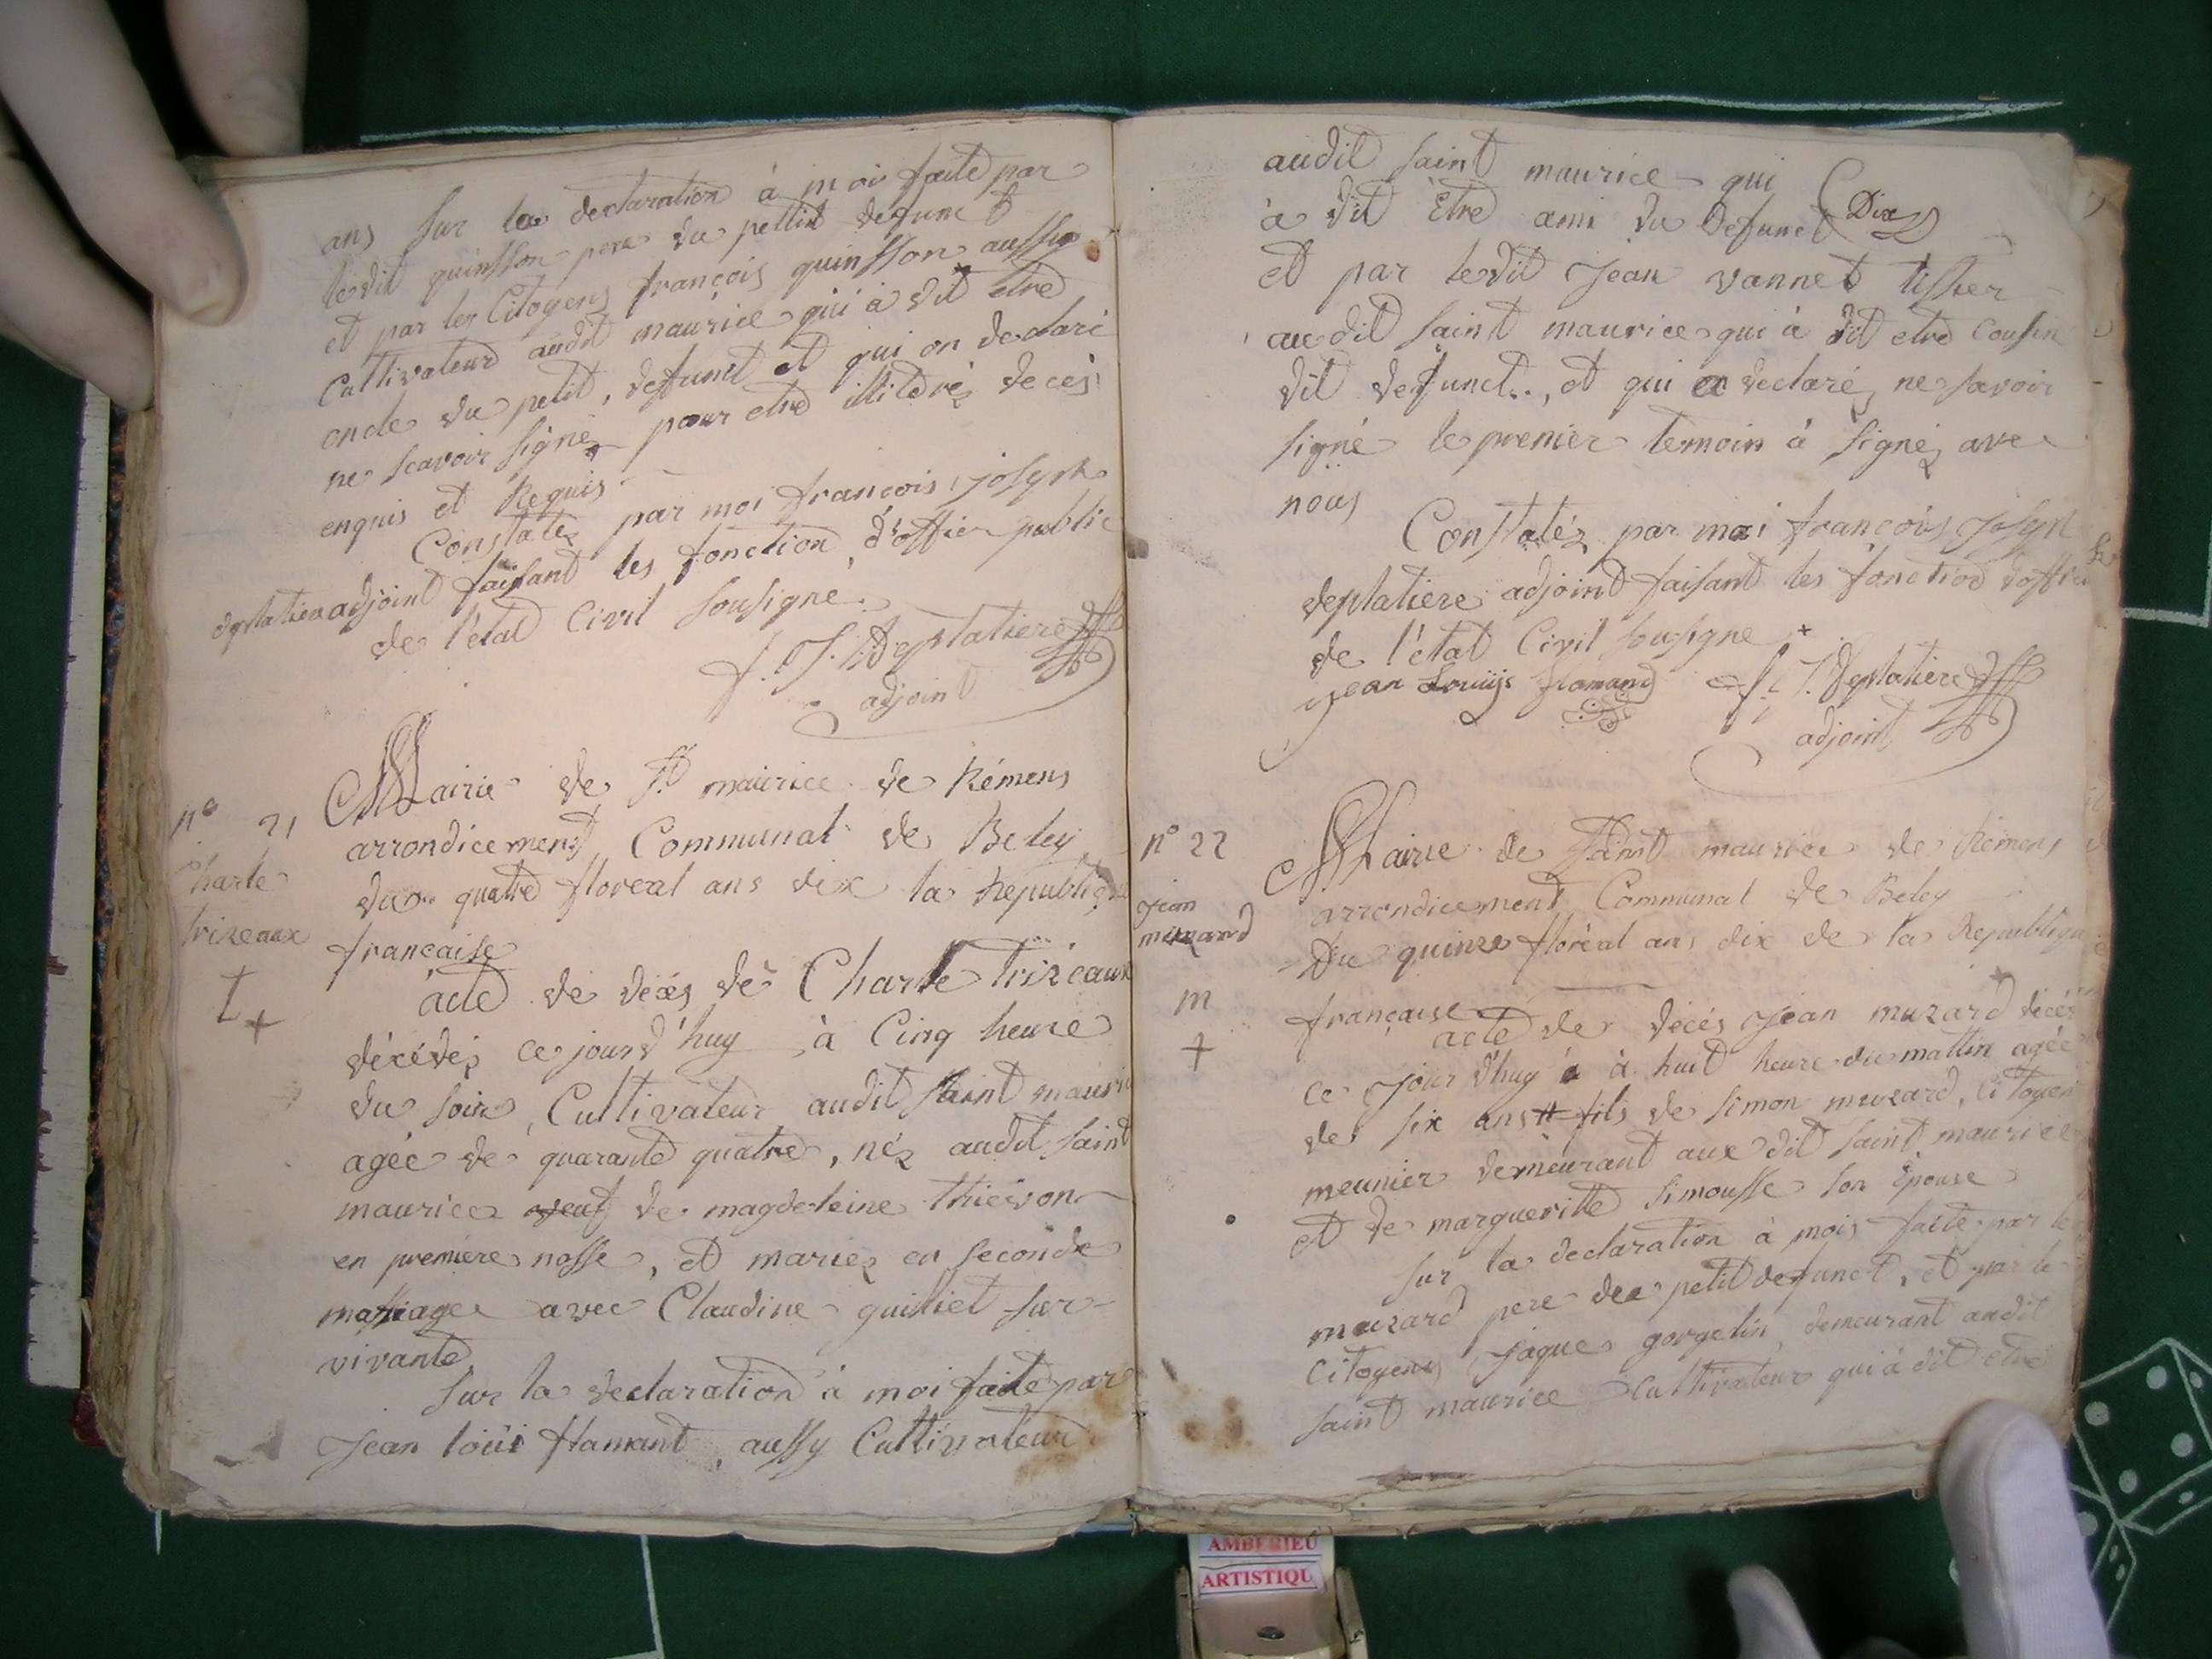 ans sur la declaration à moi faite par
ledit quinsson pere du pettit defunct
et par les Citoyens françois quinsson aussy
Cultivateur audit maurice qui à dit etre
oncle du petit, deffunct et qui on declaré
ne scavoir signé pour etre illitérés de ces
enquis et Requis
Constatéz par moi françois joseph
deplatiere adjoint faisant les fonction d'offier public
de l'état Civil sousigné
f. J. Deplatiere
adjoint
n° 21
Charle
trizeaux
t
+
Mairie de St maurice de Rémens
arrondicement Communal de Beley
du quatre floreal ans dix la Republique
française
acte de décés de Charle Trizeaux
décédéz ce jourd'huy à Cinq heure
du soir, Cultivateur audit saint mauri
agée de quarante quatre, néz audit saint
maurice veuf de magdeleine thievon
en premiere nosse, et mariez en seconde
mariage avec Claudine guilliet sur-
vivante
sur la declaration à moi faite par
Jean loüi flamant, aussy Cultivateur
audit saint maurice qui Dix
à dit Etre ami du Defunct
et par ledit Jean vannet tissier
audit saint maurice qui à dit etre Cousin
dit defunct.., et qui a declaréz ne savoir
signé le premier temoin à signéz avec
nous
Constatéz par moi françois Joseph
deplatiere adjoint faisant les fonction d'offier
de l'état Civil sousigne
jean Louijs flamand f. J. Deplatiere
adjoint
n° 22
jean
muzard
m
+
Mairie de saint maurice de Rémens
arrondicement Communal de Beley
Du quinze floréal ans dix de la Republique
française
acte de décés Jean muzard décéd
ce jour d'huy à à huit heure du mattin agée
de six ans fils de simon muzard, Citoyen
meunier demeurant aux dit saint maurice
et de margueritte simousse son Épouse
sur la declaration à mois faite par le
muzard pere du petit defunct, et par le
Citoyens Jaques gorgelin, demeurant audit
saint maurice Cultivateur qui à dit etre
AMBERIEU
ARTISTIQU